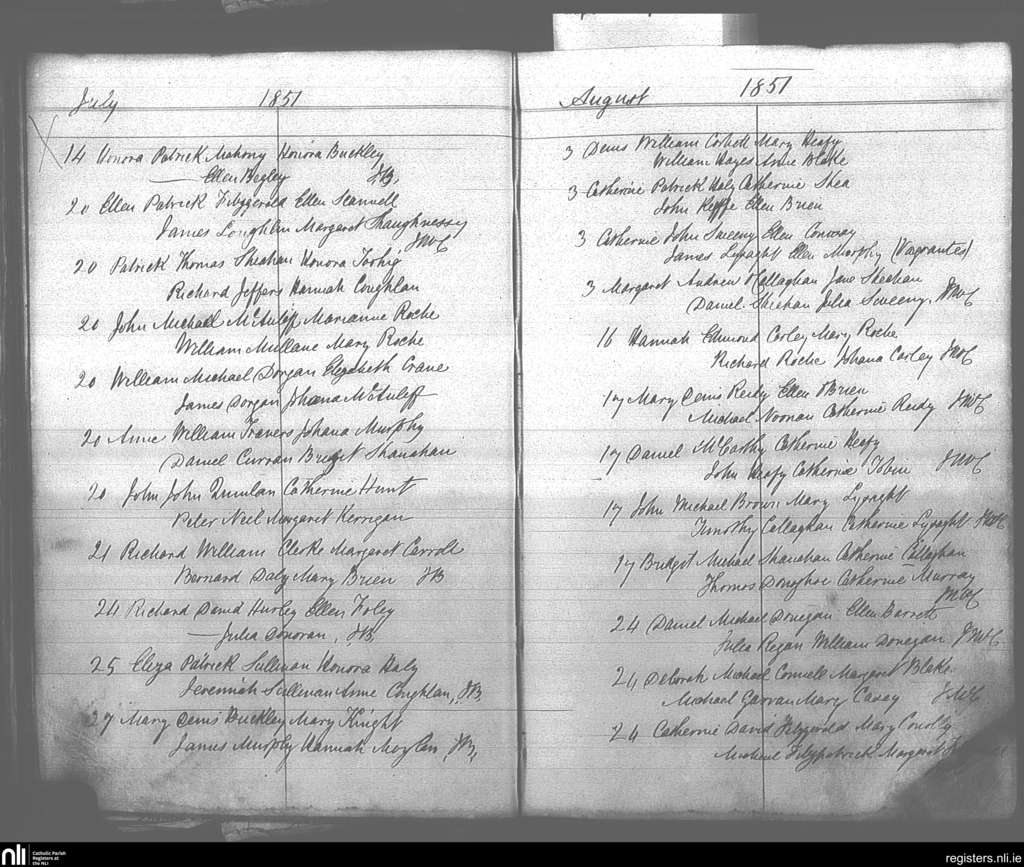 July 1851
14 Honora Patrick Mahony Honora Buckley
Ellen Begley JB,
20 Ellen Patrick Fitzgerald Ellen Scannell
James Loughlin Margaret Shaughnessy
JMcC
20 Patrick Thomas Sheahan Honora Toohig
Richard Jeffers Hannah Coughlan
20 John Michael McAuliff Marianne Roche
William Mullane Mary Roche
20 William Michael Dorgan Elizabeth Crane
James Dorgan Johana McAuliff
20 Anne William Travers Johana Murphy
Daniel Curran Bridget Shanahan
20 John John Quinlan Catherine Hunt
Peter Neil Margaret Kerrigan
21 Richard William Clerke Margaret Carroll
Bernard Daly Mary Brien JB
24 Richard David Hurley Ellen Foley
Julia Donovan, JB,
25 Eliza Patrick Sullivan Honora Haly
Jeremiah Sullivan Anne Coughlan, JB,
27 Mary Denis Buckley Mary Knight
James Murphy Hannah Moylan, JB,
August 1851
3 Denis William Corbett Mary Heafy
William Hayes Anne Blake
3 Catherine Patrick Haly Catherine Shea
John Keffe Ellen Brien
3 Catherine John Sweeny Ellen Conway
James Lysaght Ellen Murphy (Vagrantes)
3 Margaret Andrew O'Callaghan Jane Sheahan
Daniel Sheehan Julia Sweeny, JMcC
16 Hannah Edmond Corley Mary Roche
Richard Roche Johana Corley JMcC
17 Mary Denis Reidy Ellen O'Brien
Michael Noonan Catherine Reidy JMcC
17 Daniel McCarthy Catherine Heafy
John Heafy Catherine Tobin JMcC
17 John Michael Brown Mary Lysaght
Timothy Callaghan Catherine Lysaght JMcC
17 Bridget Michael Shanahan Catherine Callaghan
Thomas Donoghoe Catherine Murray
JMcC
24 Daniel Michael Donegan Ellen Barrett
Julia Regan William Donegan JMcC
24 Deborah Michael Connell Margaret Blake
Michael Garvan Mary Casey JMcC
24 Catherine David Fitzgerald Mary Conolly
Michael Fitzpatrick Margaret
nli Catholic Parish
Registers at
the NLI
registers.nli.ie